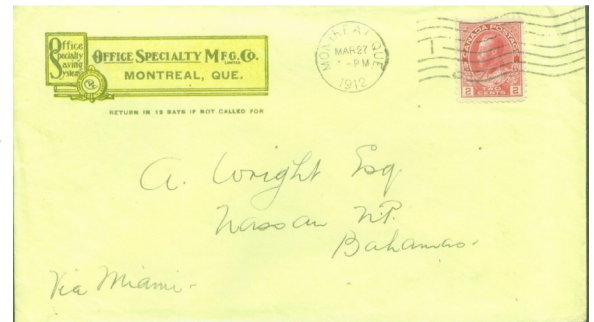 Office
Specialty
Saving
System
OFFICE SPECIALTY MFG. CO.
LIMITED
MONTREAL, QUE.
RETURN IN 15 DAYS IF NOT CALLED FOR
MONTREAL QUE
MAR 27
-PM
1912
CANADA POSTAGE
2 TWO CENTS 2
A. Wright Esq
Nassau N.P.
Bahamas.
Via Miami-